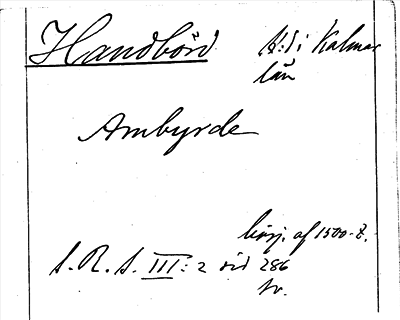 Handbörd
Hd i Kalmar
län
Ambyrde
börj. af 1500-t.
S. R. S. III: 2 sid 286